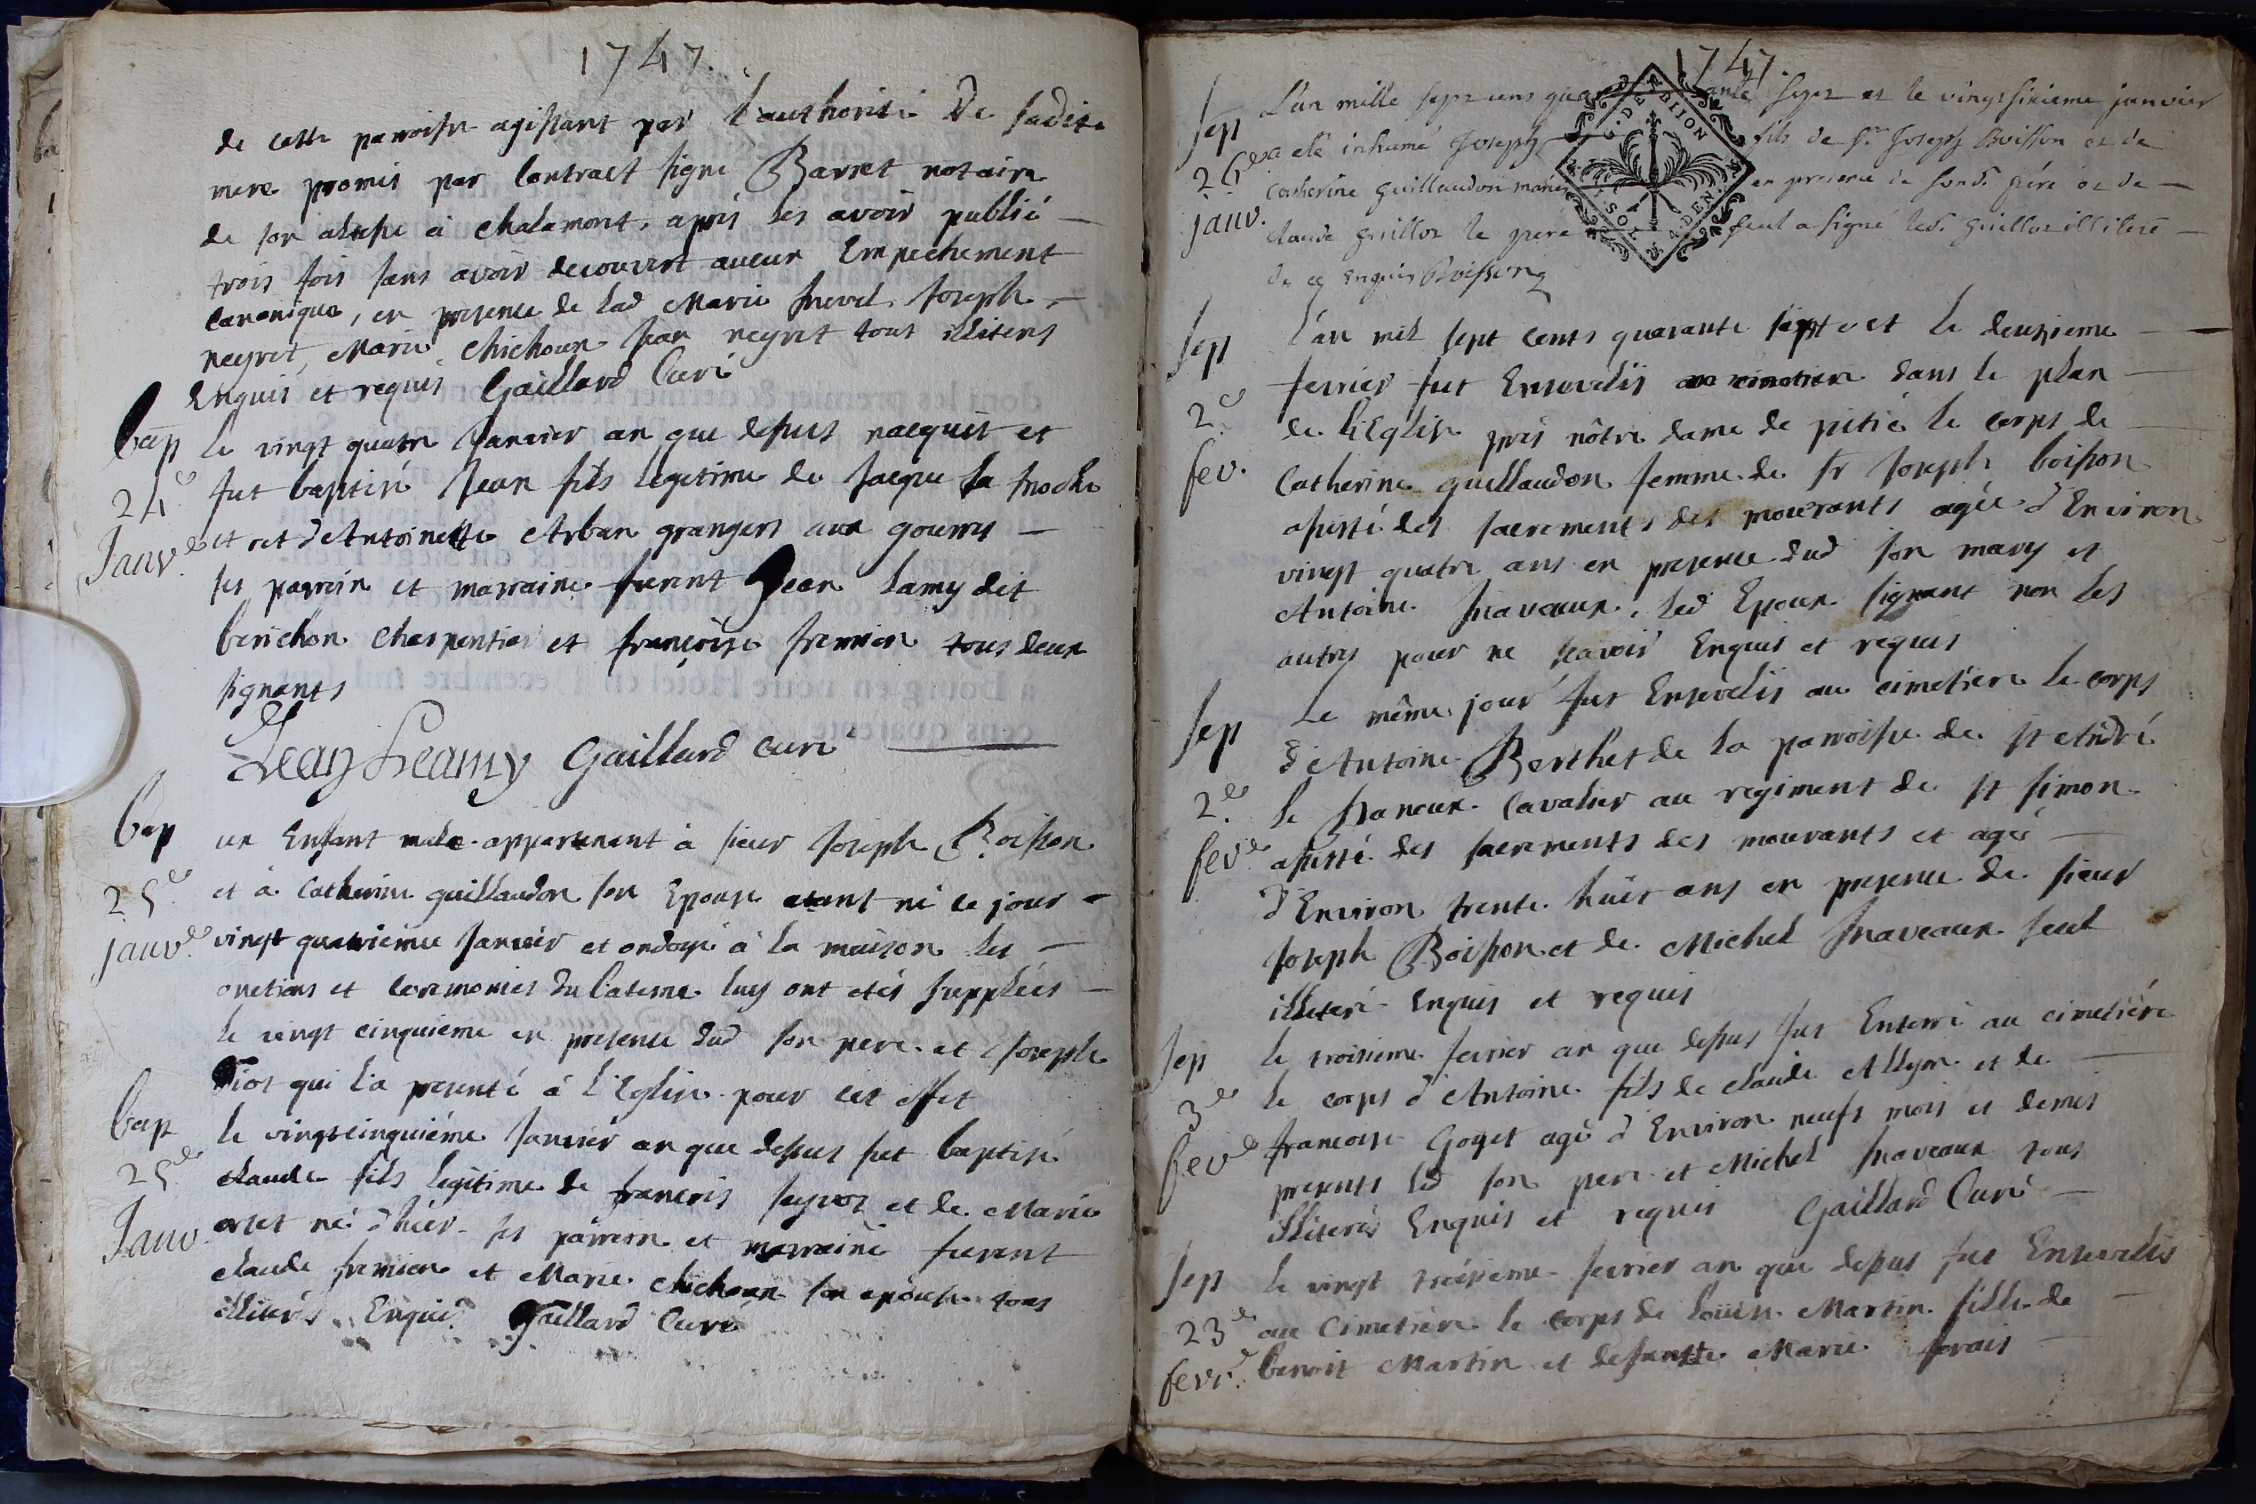 1747.
de cette parroisse agissant par l'authorité de sadite
mere promis par Contract signé Barret notaire
de son altesse à Chalamont, aprés les avoir publié
trois fois sans avoir decouvert aucun Empechement
canonique, en presence de lad Marie Joseph
neyret, Marie Chichoux Jean neyret tous illiteres
Enquis et requis Gaillard Curé
bap
24e
Janv.
le vingt quatre Janvier an que dessus nacquit et
fut baptisé Jean fils legitime de Jacque la
et et d'Antoinette Arban grangers aux
ses parrein et marraine furent Jean Lamy dit
berichon Charpentier et françoise tous deux
signants
Jean Leamy Gaillard curé
bap
25e
janv.
un Enfant male appartenant à sieur Joseph Boisson
et à Catherine guillaudon son Epouse etant né le jour
vingt quatrieme Janvier et ondoyé à la maison les
onctions et ceremonies du bateme luy ont etés supplées
le vingt cinquieme en presence dud son pere et Joseph
qui l'a presenté à l'Eglise pour cet effet
bap
25e
Janv
le vingtcinquiéme Janvier an que dessus fut baptisé
claude fils legitime de françois et de Marie
né d'hier ses parrein et marraine furent
claude et Marie chichoux son epouse tous
illiterés Enquis Gaillard Curé
1747.
G. DE DION
SOL
DEN.
sep
26e
janv.
L'an mille sept cens quarante sept et le vingtsixieme janvier
a eté inhumé Joseph fils de Sr. Joseph Boisson et de
catherine guillaudon mariés en presence de sond. pére et de
claude guillot le pere seul a signé led. guillot illiteré
de ce enquis Boisson
sep
2e
fev.
L'an mil sept cents quarante sept et le deuxieme
fevrier fut Ensevelis au cimetiere dans le plan
de l'Eglise prés nôtre dame de pitié le corps de
Catherine guillaudon femme de Sr Joseph boisson
assisté des sacrements des mourants agée d'Environ
vingt quatre ans en presence dud son mary et
Antoine Travaux, led Epoux signant non les
autres pour ne scavoir Enquis et requis
sep
2e
fev.
Le même jour fut Ensevelis au cimetiere le corps
d'Antoine Berthet de la parroisse de St André
le cavalier au regiment de St Simon
assisté des sacrements des mourants et agé
d'Environ trente huit ans en presence de sieur
Joseph Boisson et de Michel Travaux seul
illiteré Enquis et requis
sep
3e
fev
le troisieme fevrier an que dessus fut Enterré au cimetiére
le corps d'Antoine fils de claude et de
francoise Goyet agé d'Environ neuf mois et demis
presents led son pere et Michel Travaux tous
illiterés Enquis et requis Gaillard Curé
sep
23e
fevr.
le vingt troisieme fevrier an que dessus fut Ensevelis
au Cimetiere le corps de Loüise Martin fille de
benoit Martin et deffunte Marie